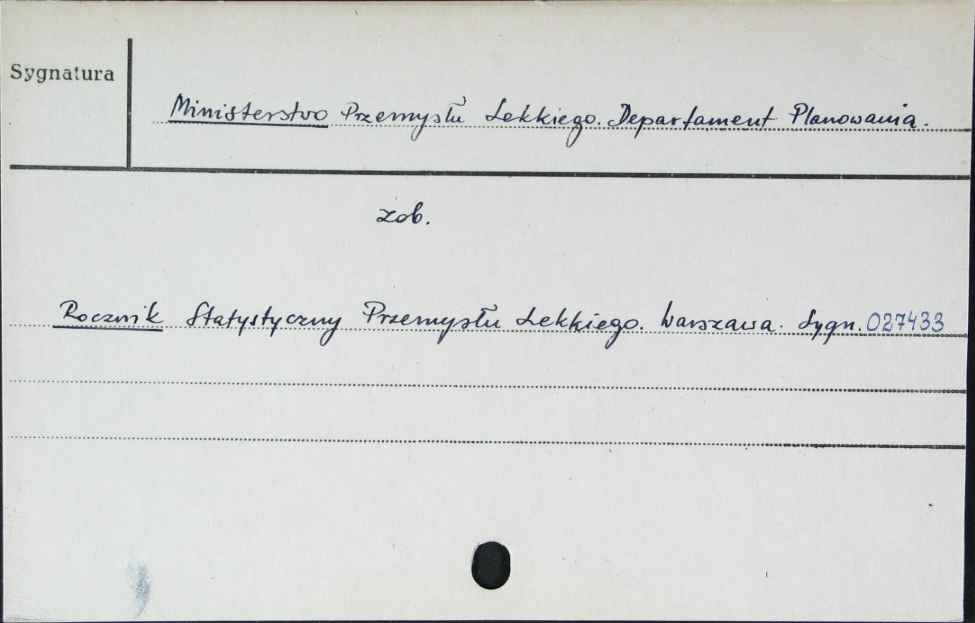 Sygnatura
Ministerstwo Przemysłu Lekkiego. Departament Planowania.
zob.
Rocznik Statystyczny Przemysłu Lekkiego. Warszawa. Sygn. 027433